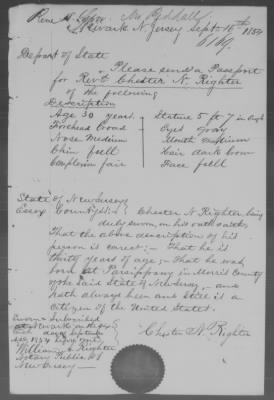 Newark N. Jersey Sept. 16th 1854
Depart of State
Please send a Passport
for Revd Chester N. Righter
of the following
Description
Age 30 years. Stature 5 ft 7 in high
Forehead broad Eyes Gray
Nose Medium Mouth Medium
Chin full Hair dark brown
Complexion fair Face full
State of New Jersey
Essex County SS: Chester N. Righter being
duly sworn, on his oath saith,
That the above description of his
person is correct; – That he is
thirty years of age; – That he was
born at Parsippany in Morris County
of the Said State of New Jersey, and
hath always been and still is a
citizen of the United States.
Sworn & Subscribed
at Newark
day of September
A.D. 1854 before me
Chester N. Righter
William Righter
Notary Public of
New Jersey